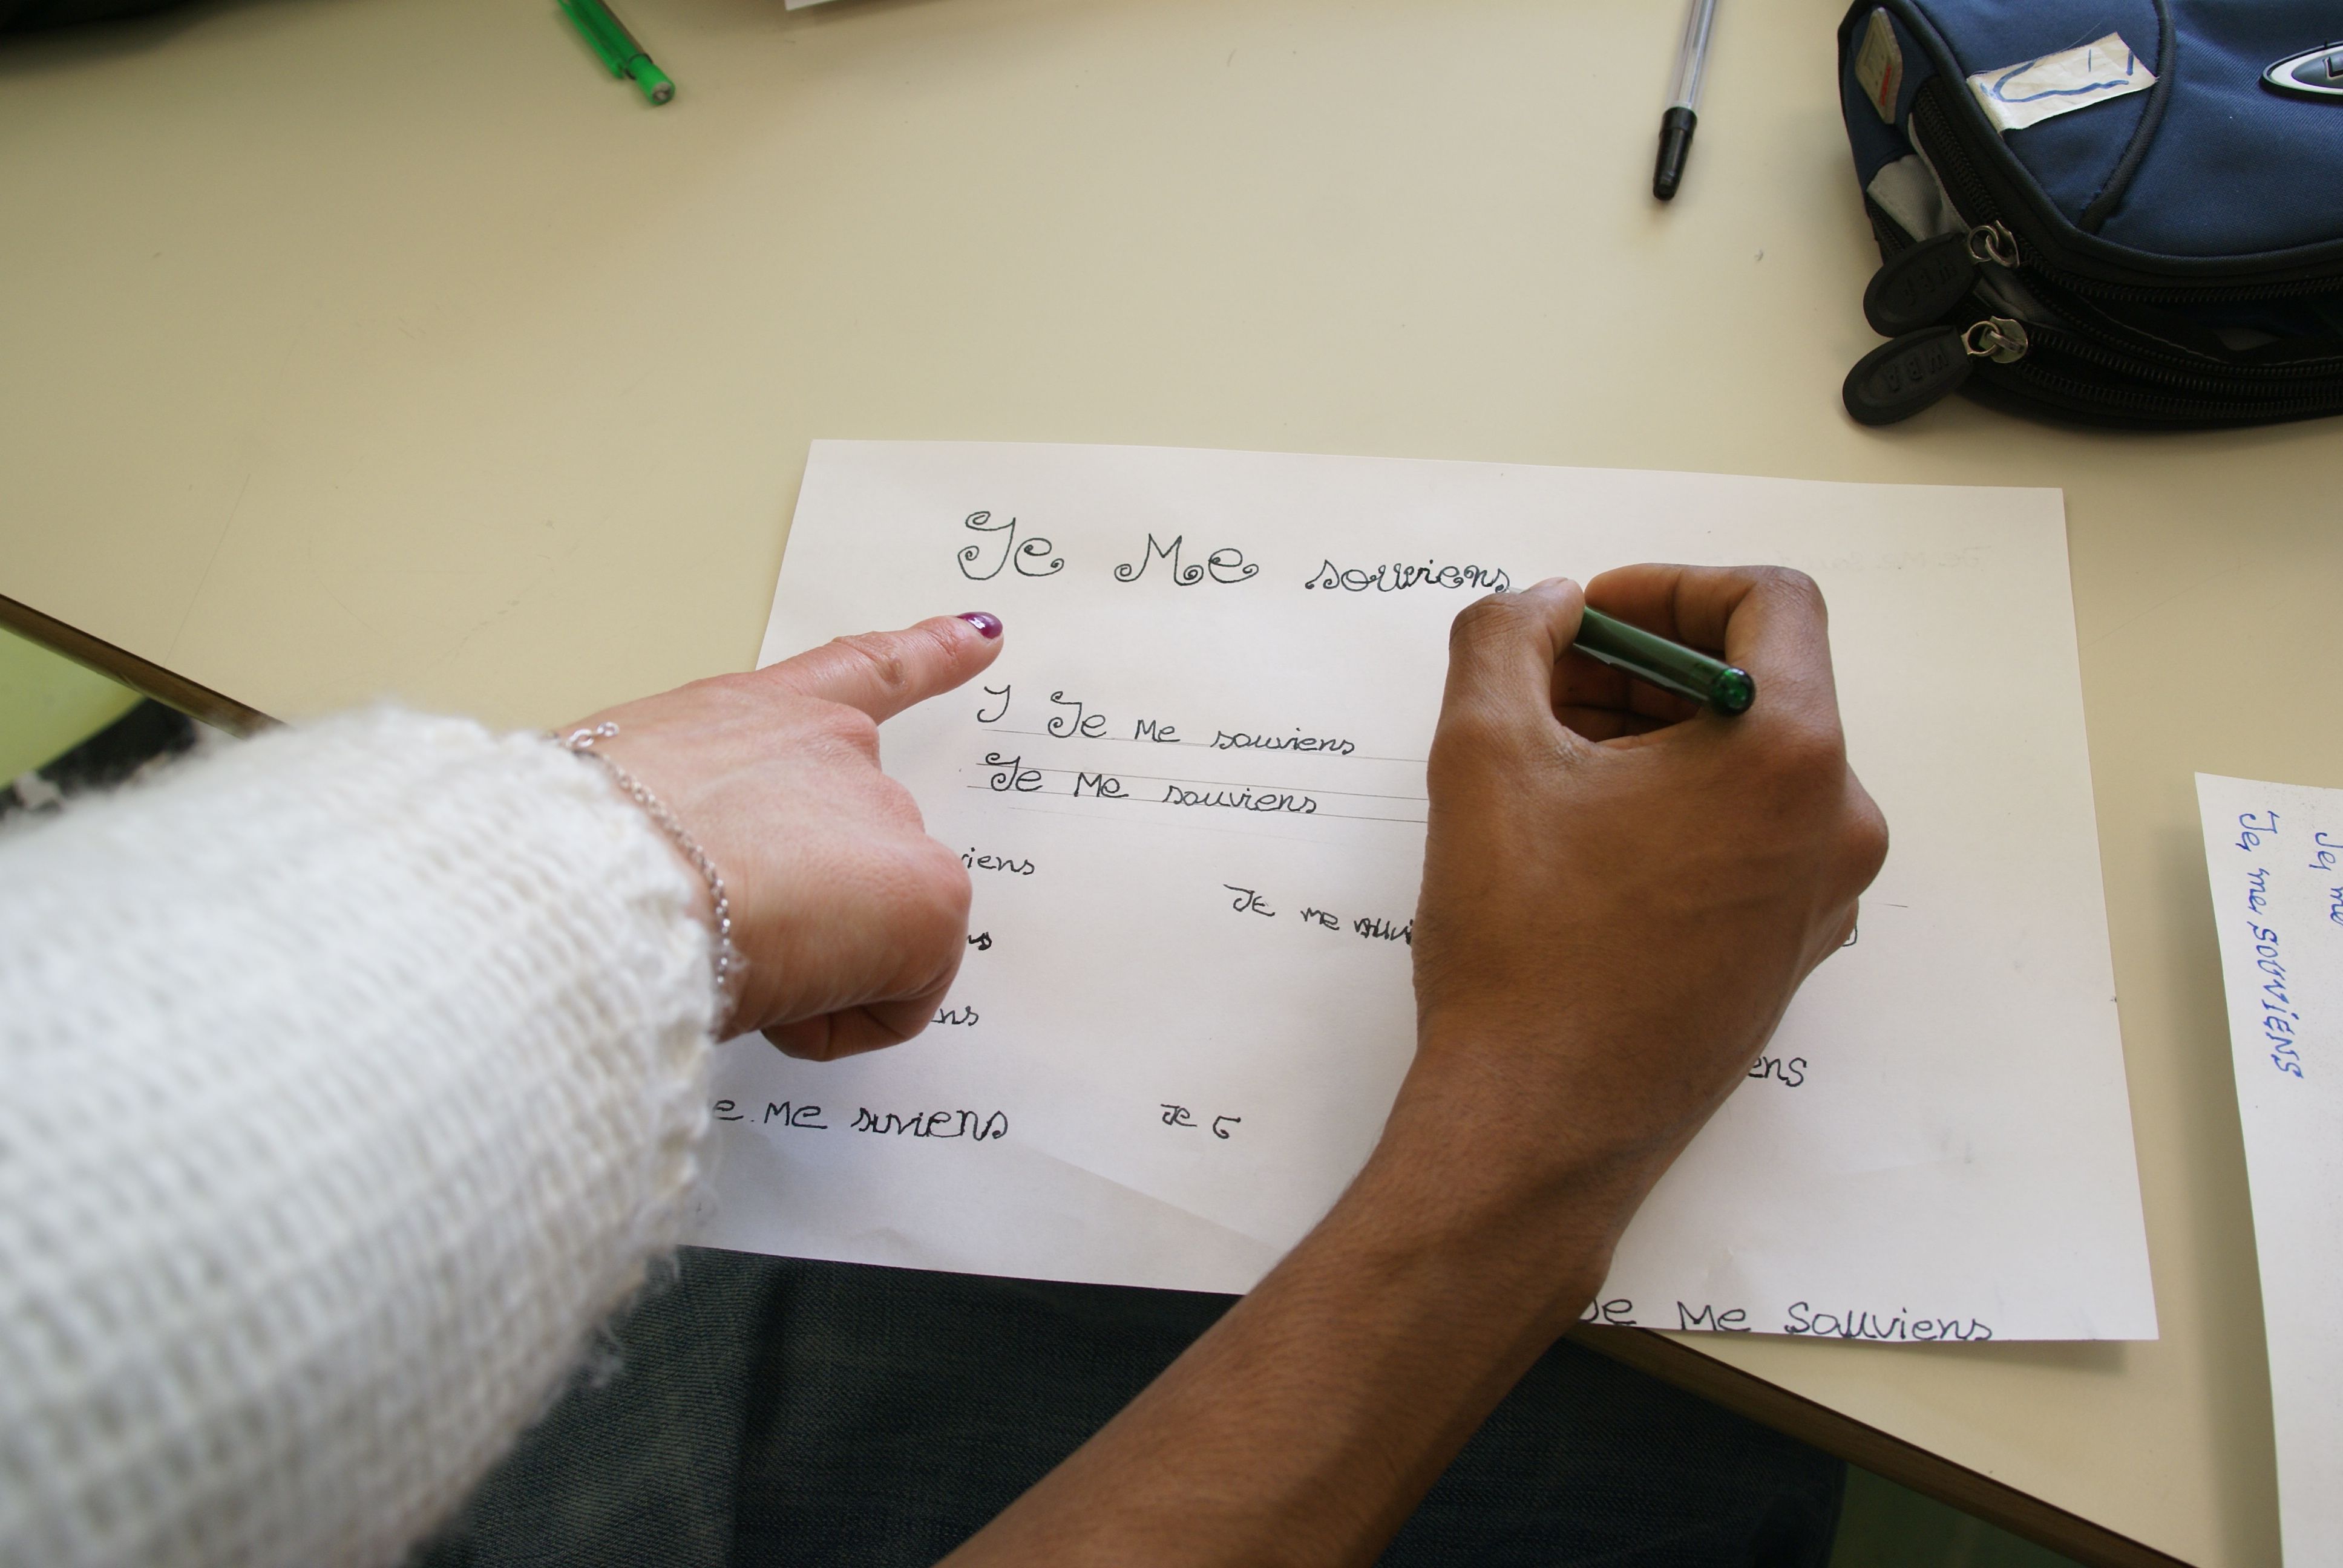 Je Me souviens
J Je me souviens
Je Me souviens
iens
Je me souvi
ns
ns
ens
e. Me suviens
Je
Je Me Souviens
Je, me souviens
Je, me